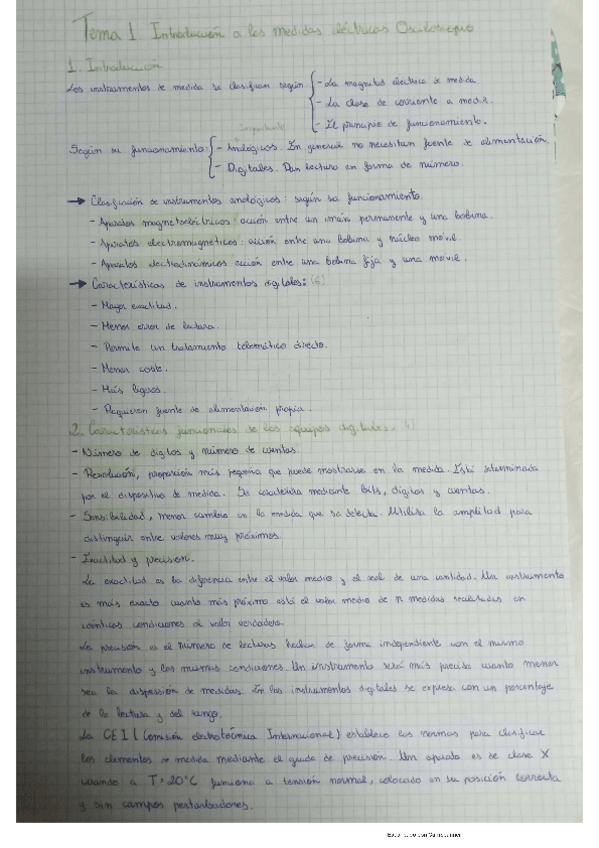 Tema 1 Introducción a las medidas eléctricas Osciloscopio
1. Introducción
Los instrumentos de medida se clasifican según - La magnitud eléctrica de medida
- La clase de corriente a medir.
- El principio de funcionamiento.
Importante
Según su funcionamiento: - Analógicos. En general no necesitan fuente de alimentación.
- Digitales. Dan lectura en forma de número.
→ Clasificación de instrumentos analógicos: según su funcionamiento.
- Aparatos magnetoeléctricos: acción entre un imán permanente y una bobina.
- Aparatos electromagnéticos: acción entre una bobina y núcleo móvil.
- Aparatos electrodinámicos acción entre una bobina fija y una móvil.
→ Características de instrumentos digitales: (6)
- Mayor exactitud.
- Menor error de lectura.
- Permite un tratamiento telemático directo.
- Menor coste.
- Más ligeros.
- Requieren fuente de alimentación propia.
2. Características funcionales de los equipos digitales.
- Número de dígitos y número de cuentas.
- Resolución, proporción más pequeña que puede mostrarse en la medida. Está determinada
por el dispositivo de medida. Se caracteriza mediante bits, dígitos y cuentas.
- Sensibilidad, menor cambio en la medida que se detecta. Utiliza la amplitud para
distinguir entre valores muy próximos.
- Exactitud y precisión.
La exactitud es la diferencia entre el valor medio y el real de una cantidad. Un instrumento
es más exacto cuanto más próximo está el valor medio de n medidas realizadas en
idénticas condiciones al valor verdadero.
La precisión es el número de lecturas hechas de forma independiente con el mismo
instrumento y las mismas condiciones. Un instrumento será más preciso cuanto menor
sea la dispersión de medidas. En los instrumentos digitales se expresa con un porcentaje
de la lectura y del rango.
La CEI (Comisión electrotécnica Internacional) establece las normas para clasificar
los elementos de medida mediante el grado de precisión. Un aparato es de clase X
cuando a T=20°C funciona a tensión normal, colocado en su posición correcta
y sin campos perturbadores.